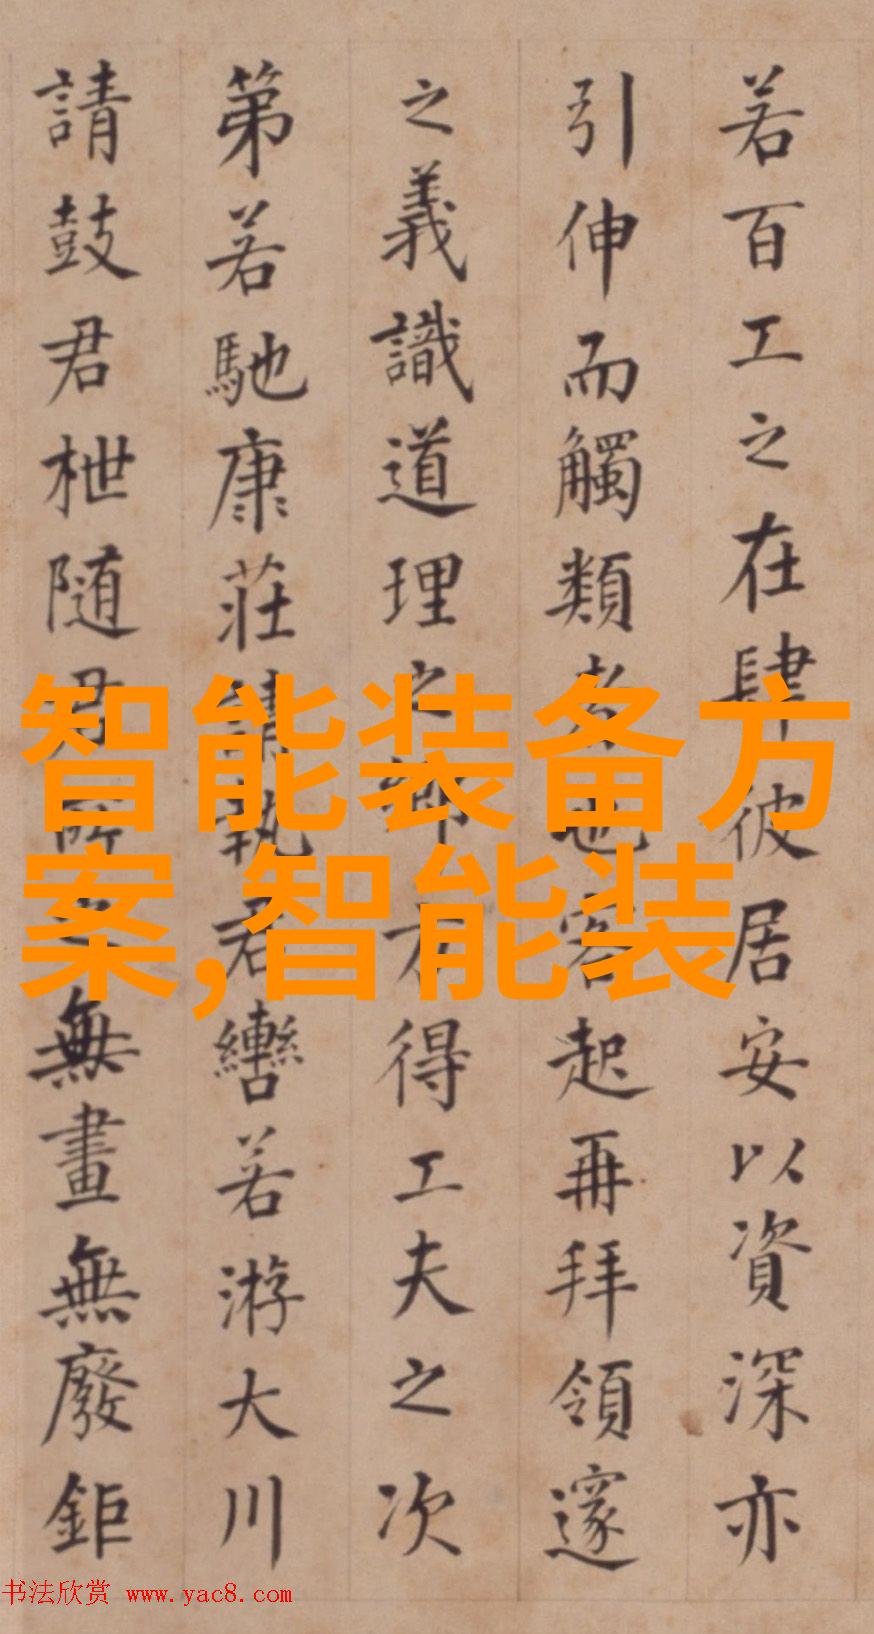 若百工之在肆彼居安以資深亦
引伸而觸類者也客起再拜領邃
之義識道理之鄉方得工夫之次
第若馳康莊請執君轡若游大川
請鼓君枻随君所之無畫無廢鉅
智能装备方
案,智能装
书法欣赏 www.yac8.com